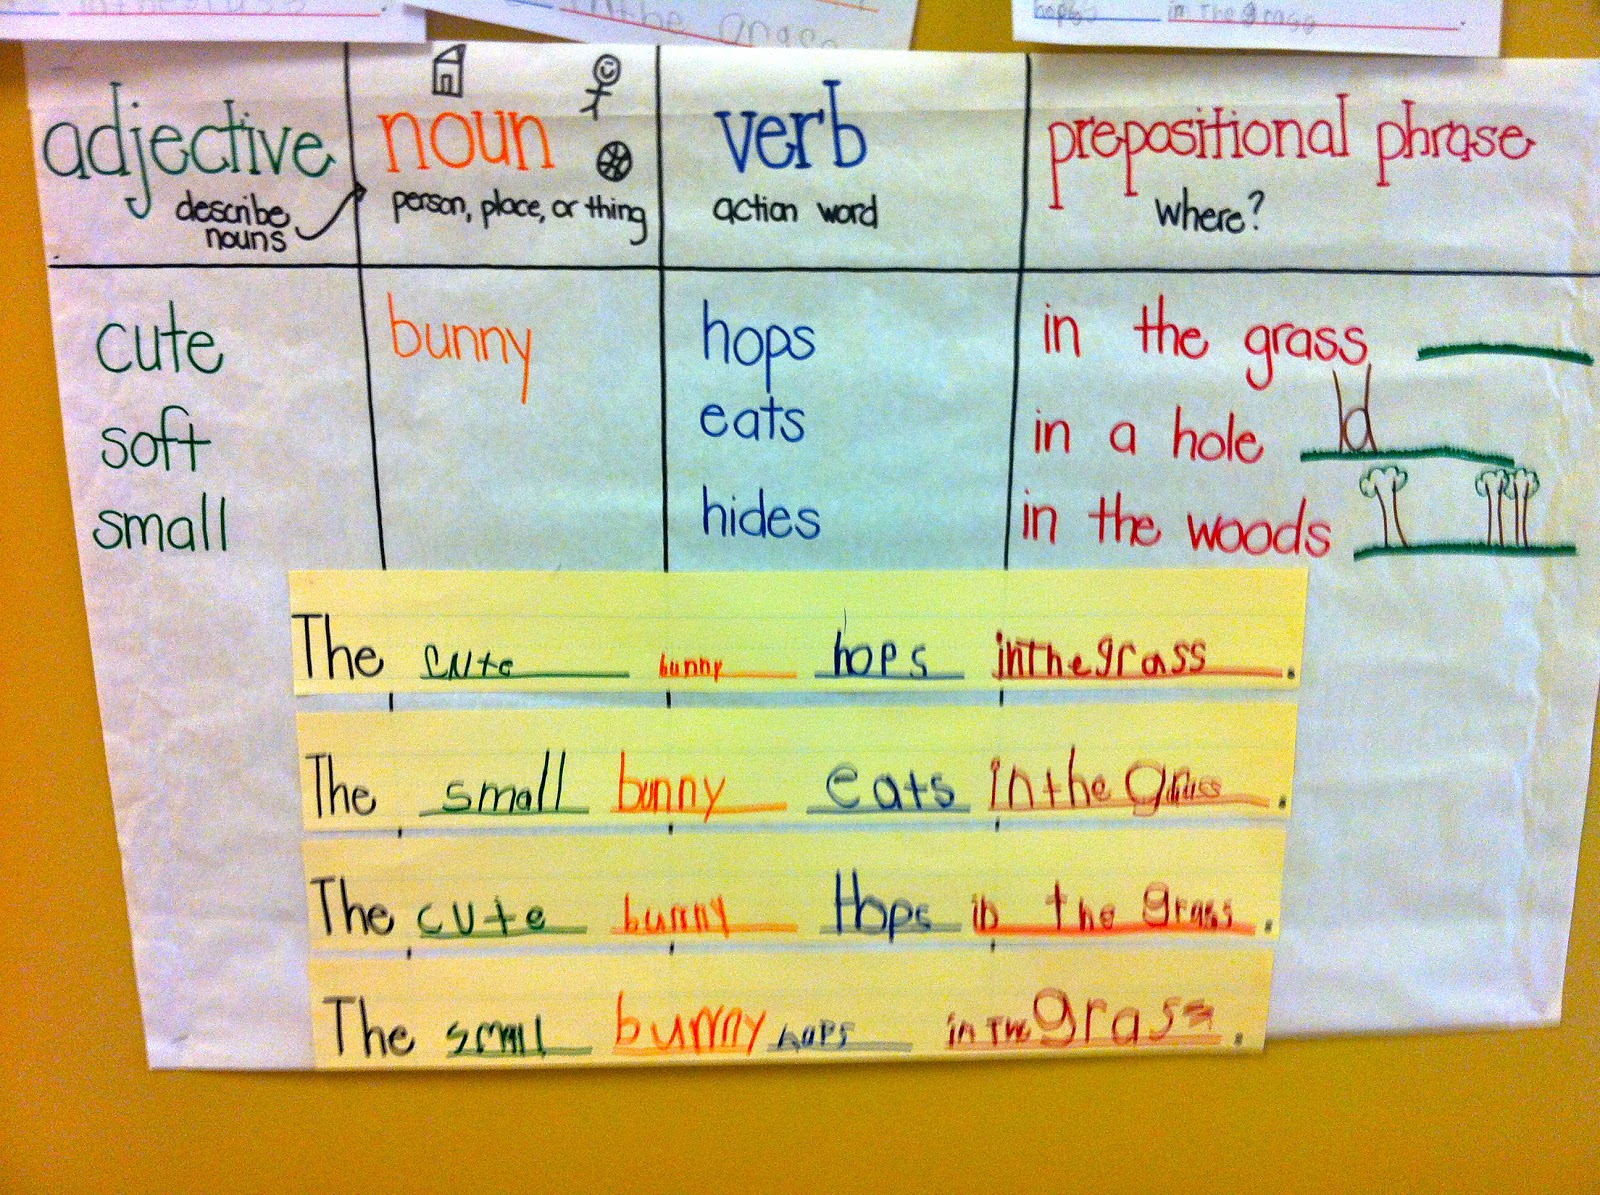 in the grass
in the grass
hops in the grass.
adjective noun verb prepositional phrase
describe nouns person, place, or thing action word where?
cute bunny hops in the grass
soft eats in a hole
small hides in the woods
The cute bunny hops inthegrass.
The small bunny eats inthe grass.
The cute bunny Hops in the grass.
The small bunny hops in The grass.